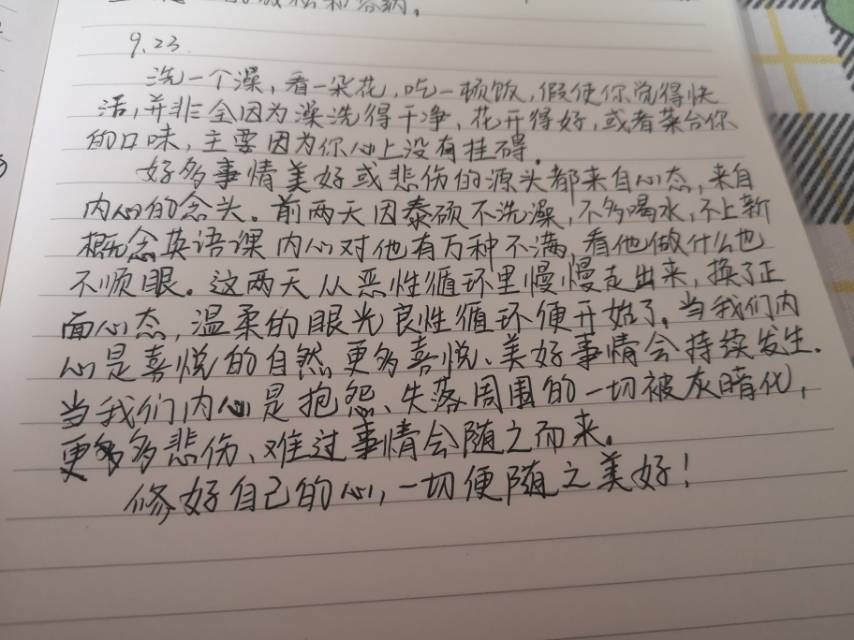 9.23
洗一个澡，看一朵花，吃一顿饭，假使你觉得快
活，并非全因为澡洗得干净，花开得好，或者菜合你
的口味，主要因为你心上没有挂碍。
好多事情美好或悲伤的源头都来自心态，来自
内心的念头。前两天因泰硕不洗澡，不多喝水，不上新
概念英语课内心对他有万种不满，看他做什么也
不顺眼。这两天从恶性循环里慢慢走出来，换了正
面心态，温柔的眼光良性循环便开始了。当我们内
心是喜悦的自然更多喜悦、美好事情会持续发生.
当我们内心是抱怨、失落周围的一切被灰暗化，
更多多悲伤、难过事情会随之而来。
修好自己的心，一切便随之美好！